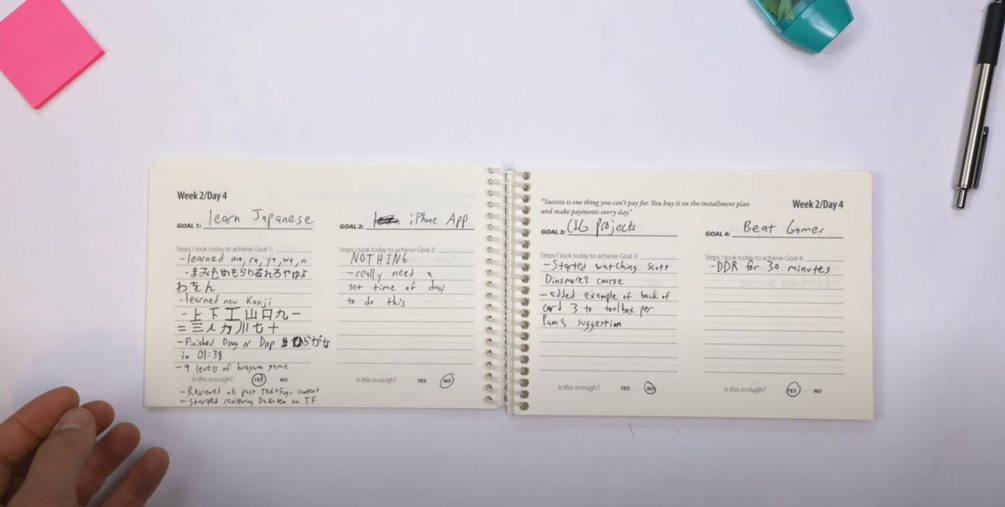 Week 2/Day 4
GOAL 1: learn Japanese
Steps I took today to achieve Goal 1:
-learned ma, ra, ya, wa, n
-まみむめもらりるれろやゆよ
わをん
-learned new Kanji
-上下工山口九一
二三人力川七十
-Finished Drag n' Drop ひらがな
in 01:38
-9 levels of hiragana game
Is this enough? YES NO
-Reviewed all past TextFugu content
-Started reviewing on TF
GOAL 2: iPhone App
Steps I took today to achieve Goal 2:
NOTHING
-really need a
set time of day
to do this
Is this enough? YES NO
"Success is one thing you can't pay for. You buy it on the installment plan
and make payments every day."
Week 2/Day 4
GOAL 3: Projects
Steps I took today to achieve Goal 3:
-Started watching Scott
Dinsmore's course
-added example of back of
card 3 to toolbox per
Pam's suggestion
Is this enough? YES NO
GOAL 4: Beat Games
Steps I took today to achieve Goal 4:
-DDR for 30 minutes
Is this enough? YES NO